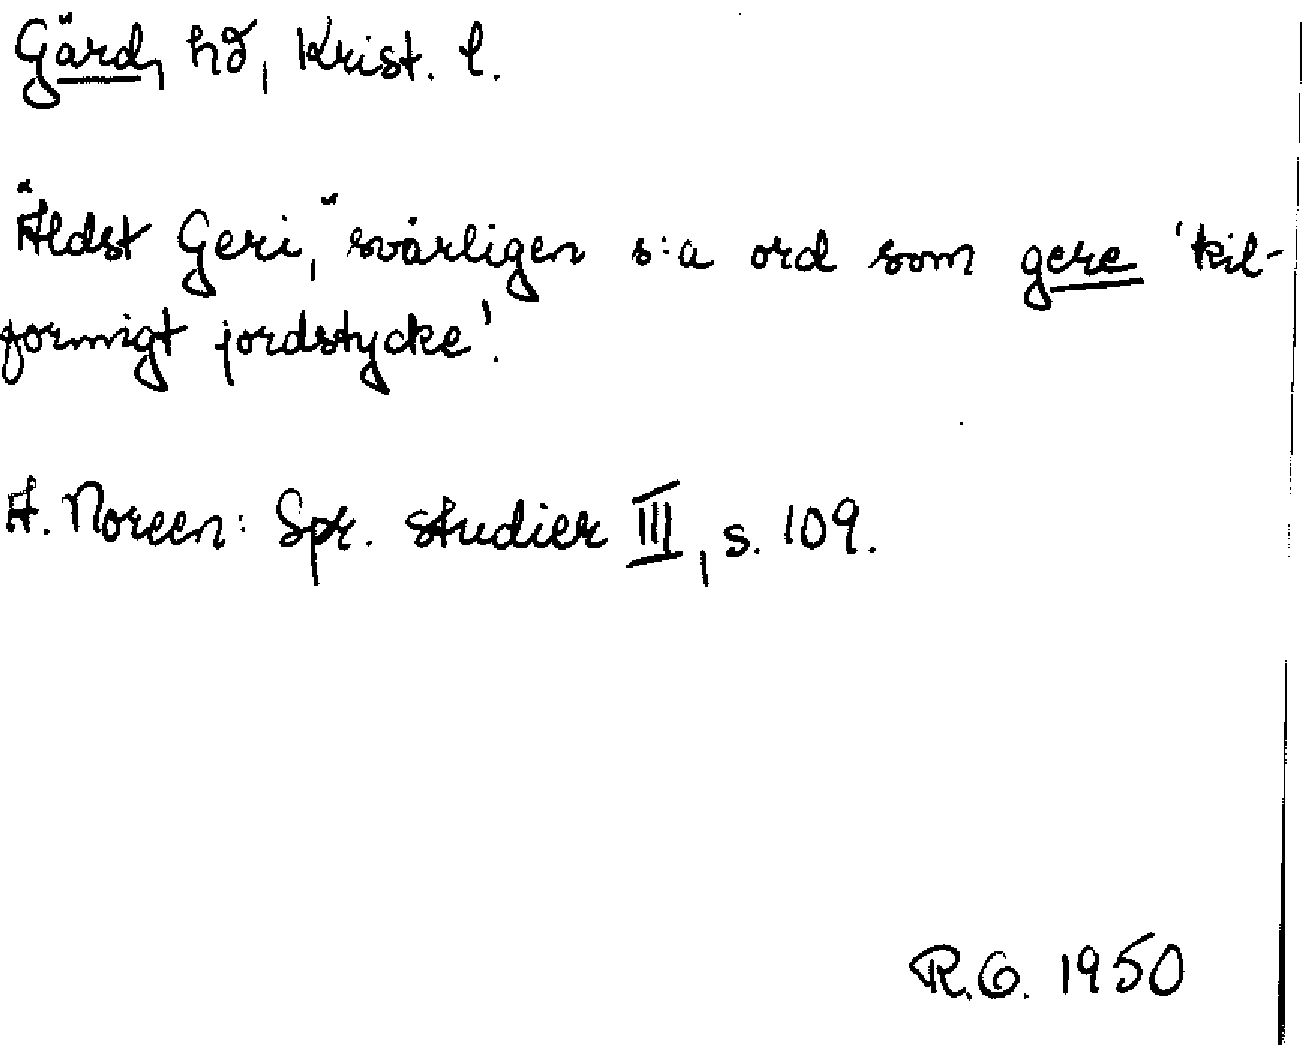 Gärd, hd, Krist. l.
Äldst Geri, "svårligen s:a ord som gere 'kil-
formigt jordstycke'.
A. Noreen: Spr. studier III, s. 109.
R.G. 1950